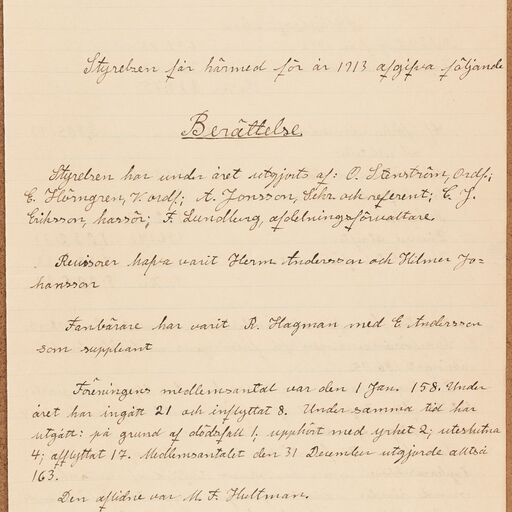 Styrelsen får härmed för år 1913 afgifva följande
Berättelse
Styrelsen har under året utgjorts af: O. Stenström, Ordf;
E. Hörngren, V. ordf; A. Jonsson, Sekr. och referent; C. J.
Eriksson, kassör; F. Lundberg, afdelningsförvaltare.
Revisorer hafva varit Herm. Andersson och Hilmer Jo-
hansson
Fanbärare har varit R. Hagman med E. Andersson
som suppleant
Föreningens medlemsantal var den 1 Jan. 158. Under
året har ingått 21 och inflyttat 8. Under samma tid har
utgått: på grund af dödsfall 1; upphört med yrket 2; uteslutna
4; afflyttat 17. Medlemsantalet den 31 December utgjorde alltså
163.
Den aflidne var M. F. Hultman.